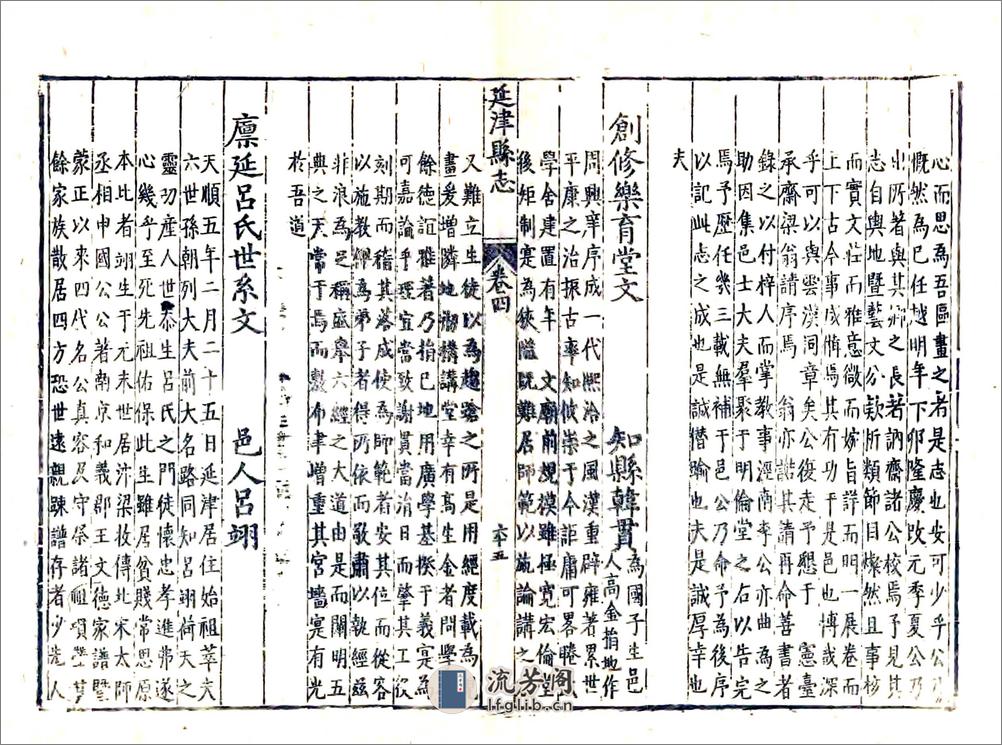 心而思為吾區畫之者是志也安可少乎公乃
慨然為已任越明年丁卯隆慶改元季夏公乃
出所著與其鄉之長者訥齋諸公校焉予見其
志自輿地暨藝文分欵析類節目燦然且事核
而實文莊而雅意微而嫁旨詳而明一展卷而
上下古今事成備焉其有功于是邑也博哉深
乎可以與雲洞童矣公復走予懇于憲臺
承齋梁翁請序焉翁亦諾其請再命善書者
錄之以付梓人而掌教事涇商李公亦曲為之
助因集邑士大夫羣聚于明倫堂之右以告完
焉予歷任幾三載無補于邑公乃命予為後序
以記此志之成也是誠僭踰也夫是誠厚幸也
夫
創修樂育堂文
知縣韓貫
為國子生邑人高金捐地作
周興庠序成一代熙洽之風漢重辟雍著累世
平康之治振古率知攸崇于今詎庸可畧睠
學舍建置有年文廟前規模雖極寬宏倫堂
後矩制寔為狹隘既難居師範以施論講之
延津縣志
卷四
六十五
又難立生徒以為趨蹌之所是用經度載為
畫爰增隣地搠構講堂幸有高生金者問學
餘德誼雅著乃捐已地用廣學基揆于義寔為
可嘉論乎理宜當致謝貫當治日而肇其工役
刻期而稽其落成使為師範者安其位而從容
以施教學為弟子者得所依而敬肅以執經
非浪為足稱盛舉六經之大道由是而闡明五
典之天常于焉而敷布津增重其宮墻寔有光
於吾道
廩延呂氏世系文
邑人呂翊
天順五年二月二十五日延津居住始祖萃夫
六世孫朝列大夫前大名路同知呂翊荷天之
靈功產人世忝生呂氏之門徒懷忠孝進弗遂
心幾乎至死先祖佑保此生雖居貧賤常思原
本比者翊生于元末世居汴梁故傳北宋太師
丞相申國公公著南京和義郡王文德家譜暨
蒙正以來四代名公真容及守祭諸祖項塋其
餘家族散居四方恐世遠親踈譜存者少先人
流芳閣
lfglib.cn